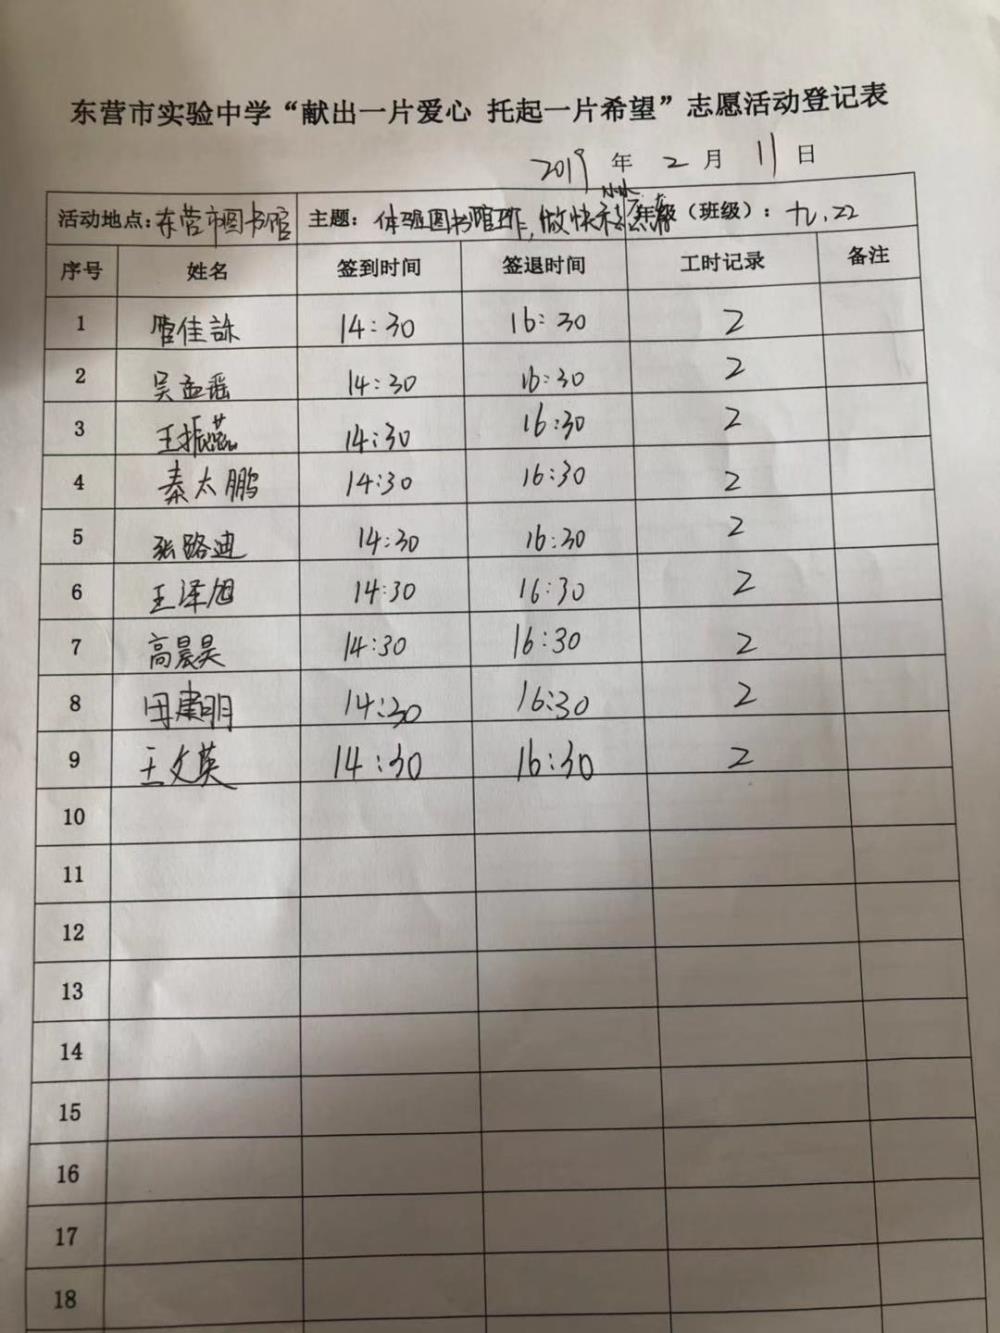 东营市实验中学“献出一片爱心 托起一片希望”志愿活动登记表
2019 年 2 月 11 日
活动地点：东营市图书馆 主题：体验图书馆工作，做快乐 年级（班级）：九．22
序号 姓名 签到时间 签退时间 工时记录 备注
1 佳 14:30 16:30 2
2 吴孟瑶 14:30 16:30 2
3 王振蕊 14:30 16:30 2
4 秦太鹏 14:30 16:30 2
5 张路迪 14:30 16:30 2
6 王泽旭 14:30 16:30 2
7 高晨昊 14:30 16:30 2
8 田建明 14:30 16:30 2
9 王文英 14:30 16:30 2
10
11
12
13
14
15
16
17
18